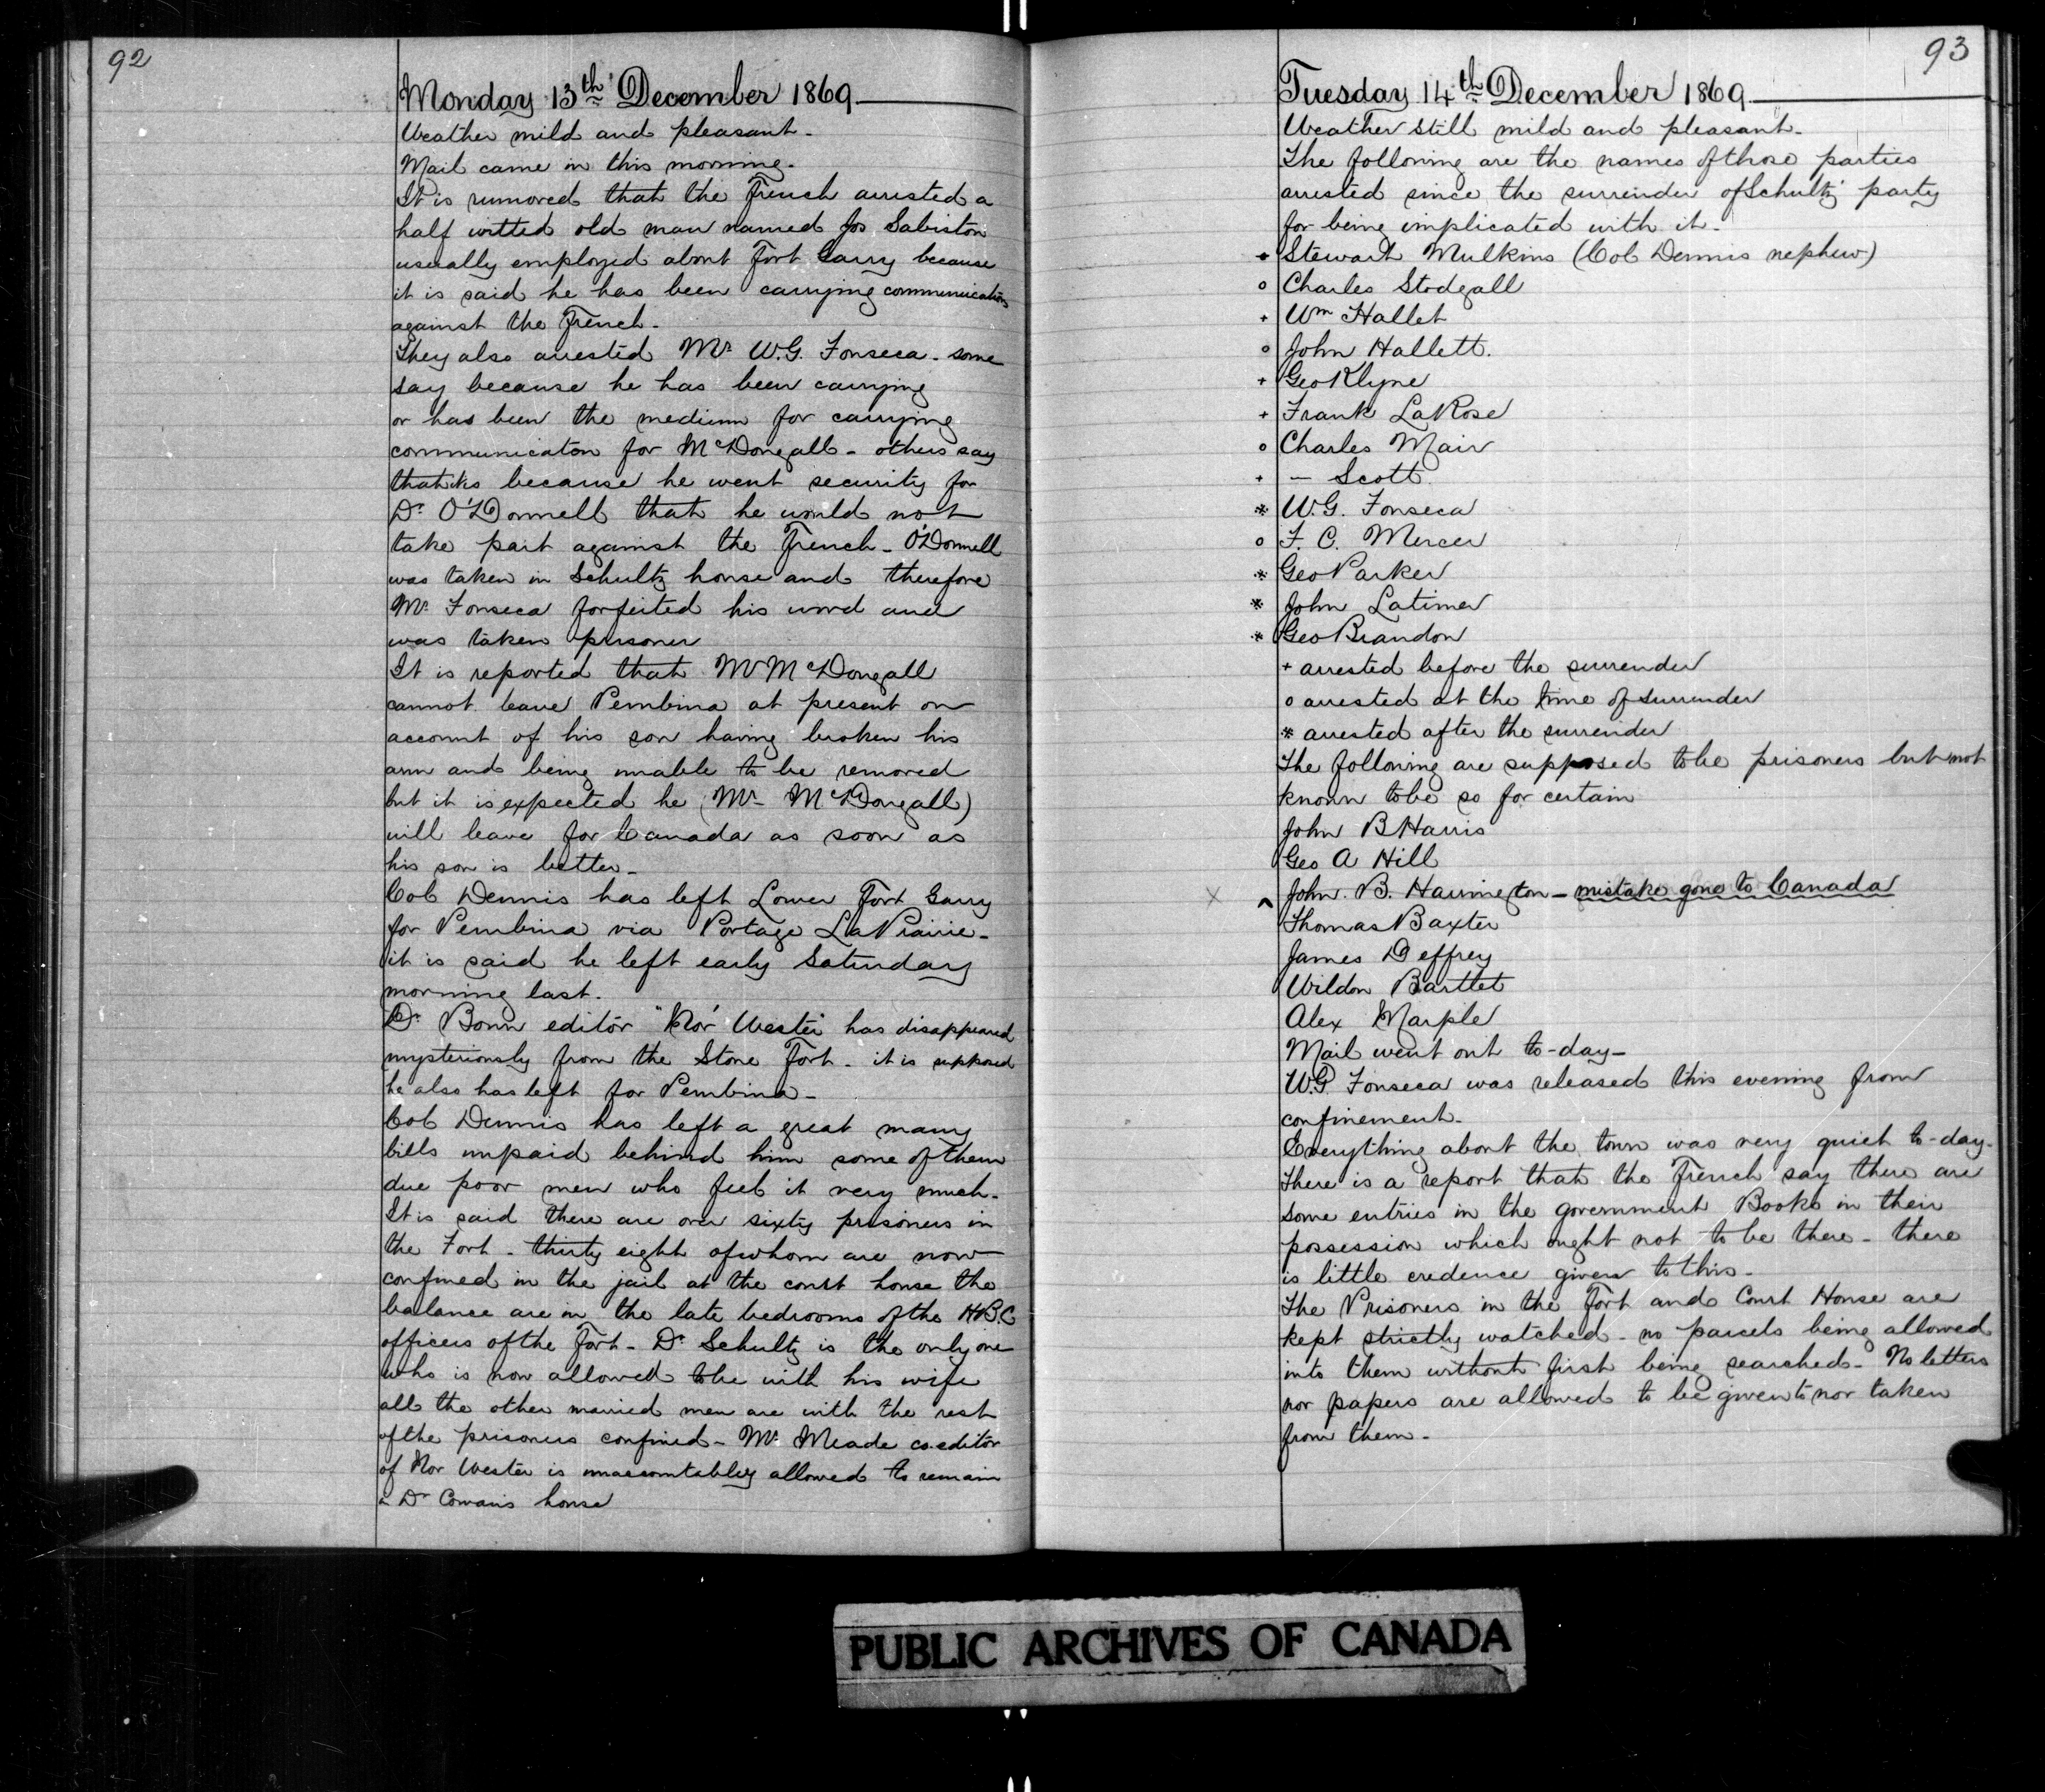 92
Monday 13th December 1869
Weather mild and pleasant-
Mail came in this morning-
It is rumored that the French arrested a
half witted old man named Jos Sabiston
usually employed about Fort Garry because
it is said he has been carrying communications
against the French-
They also arrested Mr W.G. Fonseca - some
say because he has been carrying
or has been the medium for carrying
communicaton for McDougall - others say
that its because he went security for
Dr O'Donnell that he would not
take part against the French - O'Donnell
was taken in Schultz house and therefore
Mr Fonseca forfeited his word and
was taken prisoner
It is reported that Mr McDougall
cannot leave Pembina at present on
account of his son having broken his
arm and being unable to be removed
but it is expected he (Mr McDougall)
will leave for Canada as soon as
his son is better-
Col Dennis has left Lower Fort Garry
for Pembina via Portage La Prairie-
it is said he left early Saturday
morning last.
Dr Bown editor "Nor' Wester" has disappeared
mysteriously from the Stone Fort - it is supposed
he also has left for Pembina-
Col Dennis has left a great many
bills unpaid behind him some of them
due poor men who feel it very much-
It is said there are over sixty prisoners in
the Fort - thirty eight of whom are now
confined in the jail at the court house the
balance are in the late bedrooms of the H.B.C
officers of the Fort - Dr Schultz is the only one
who is now allowed to be with his wife
all the other married men are with the rest
of the prisoners confined - Mr Meade co-editor
of Nor Wester is unaccountabley allowed to remain
in Dr Cowan's house
93
Tuesday 14th December 1869
Weather still mild and pleasant-
The following are the names of those parties
arrested since the surrender of Schultz' party
for being implicated with it-
+ Stewart Mulkins (Col Dennis nephew)
o Charles Stodgall
+ Wm Hallet
o John Hallett.
+ Geo Klyne
+ Frank LaRose
o Charles Mair
+ - Scott
* W.G. Fonseca
o F. C. Mercer
* Geo Parker
* John Latimer
* Geo Brandon
+ arrested before the surrender
o arrested at the time of surrender
* arrested after the surrender
The following are supposed to be prisoners but not
known to be so for certain
John B Harris
Geo A Hill
X ^ John. B. Harrington - mistake gone to Canada
Thomas Baxter
James Deffrey
Wildon Bartlet
Alex Marple
Mail went out to-day-
W.G Fonseca was released this evening from
confinement-
Everything about the town was very quiet to-day-
There is a report that the French say there are
some entries in the government Books in their
possession which ought not to be there - there
is little credence given to this-
The Prisoners in the Fort and Court House are
kept strictly watched - no parcels being allowed
into them without first being searched - No letters
nor papers are allowed to be given to nor taken
from them-
PUBLIC ARCHIVES OF CANADA